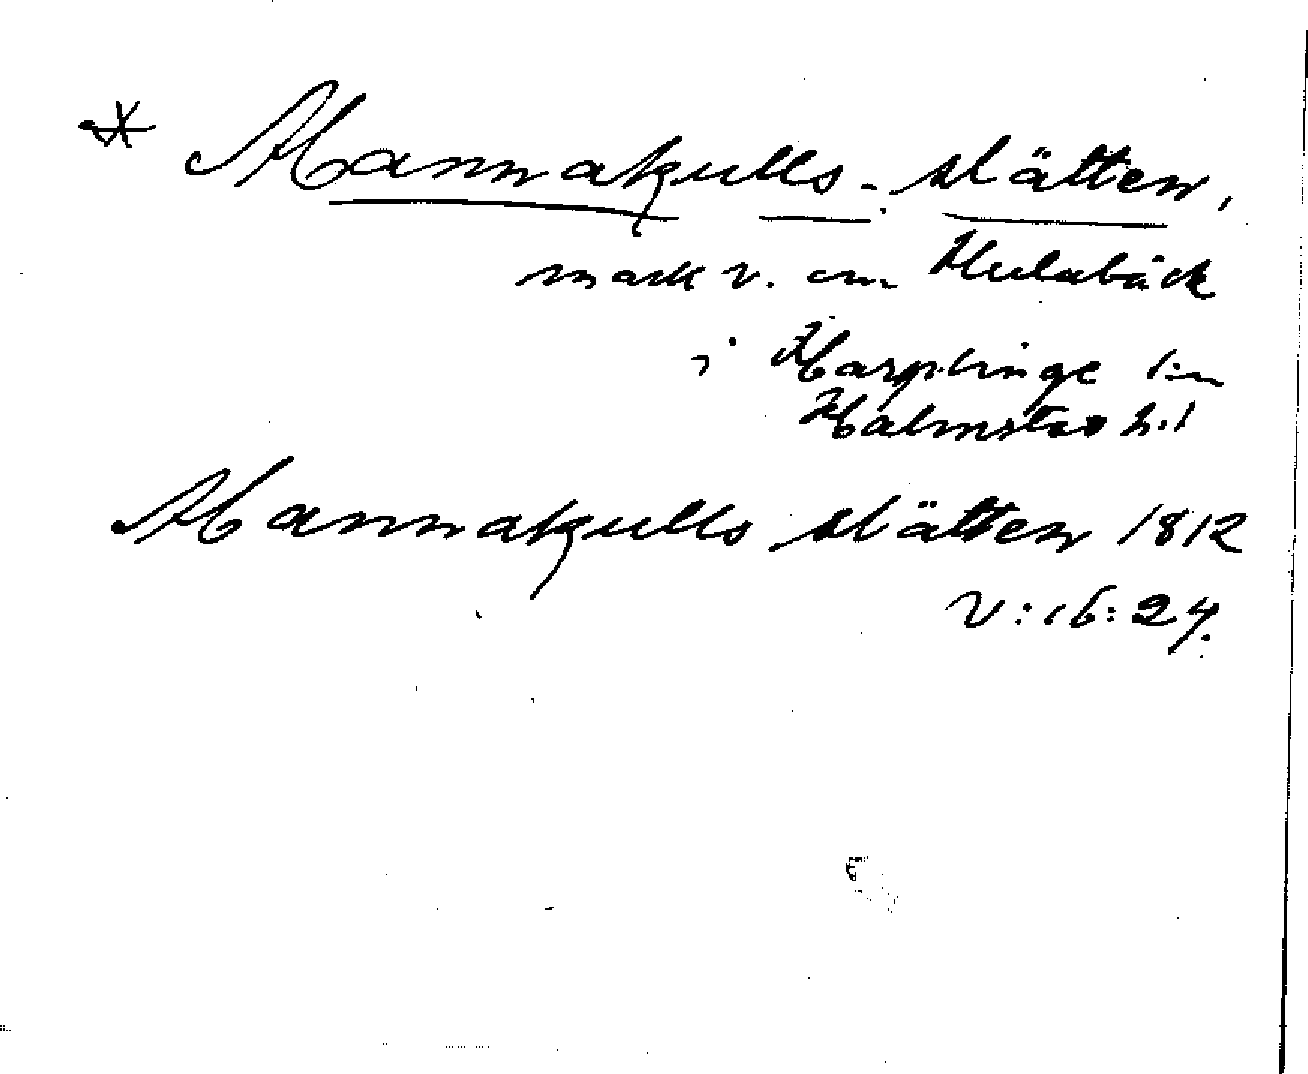 * Mannakulls-slätten,
mark v. om Hulabäck
i Harplinge sn
Halmstad h:d
Mannakulls slätten 1812
V:16:24.